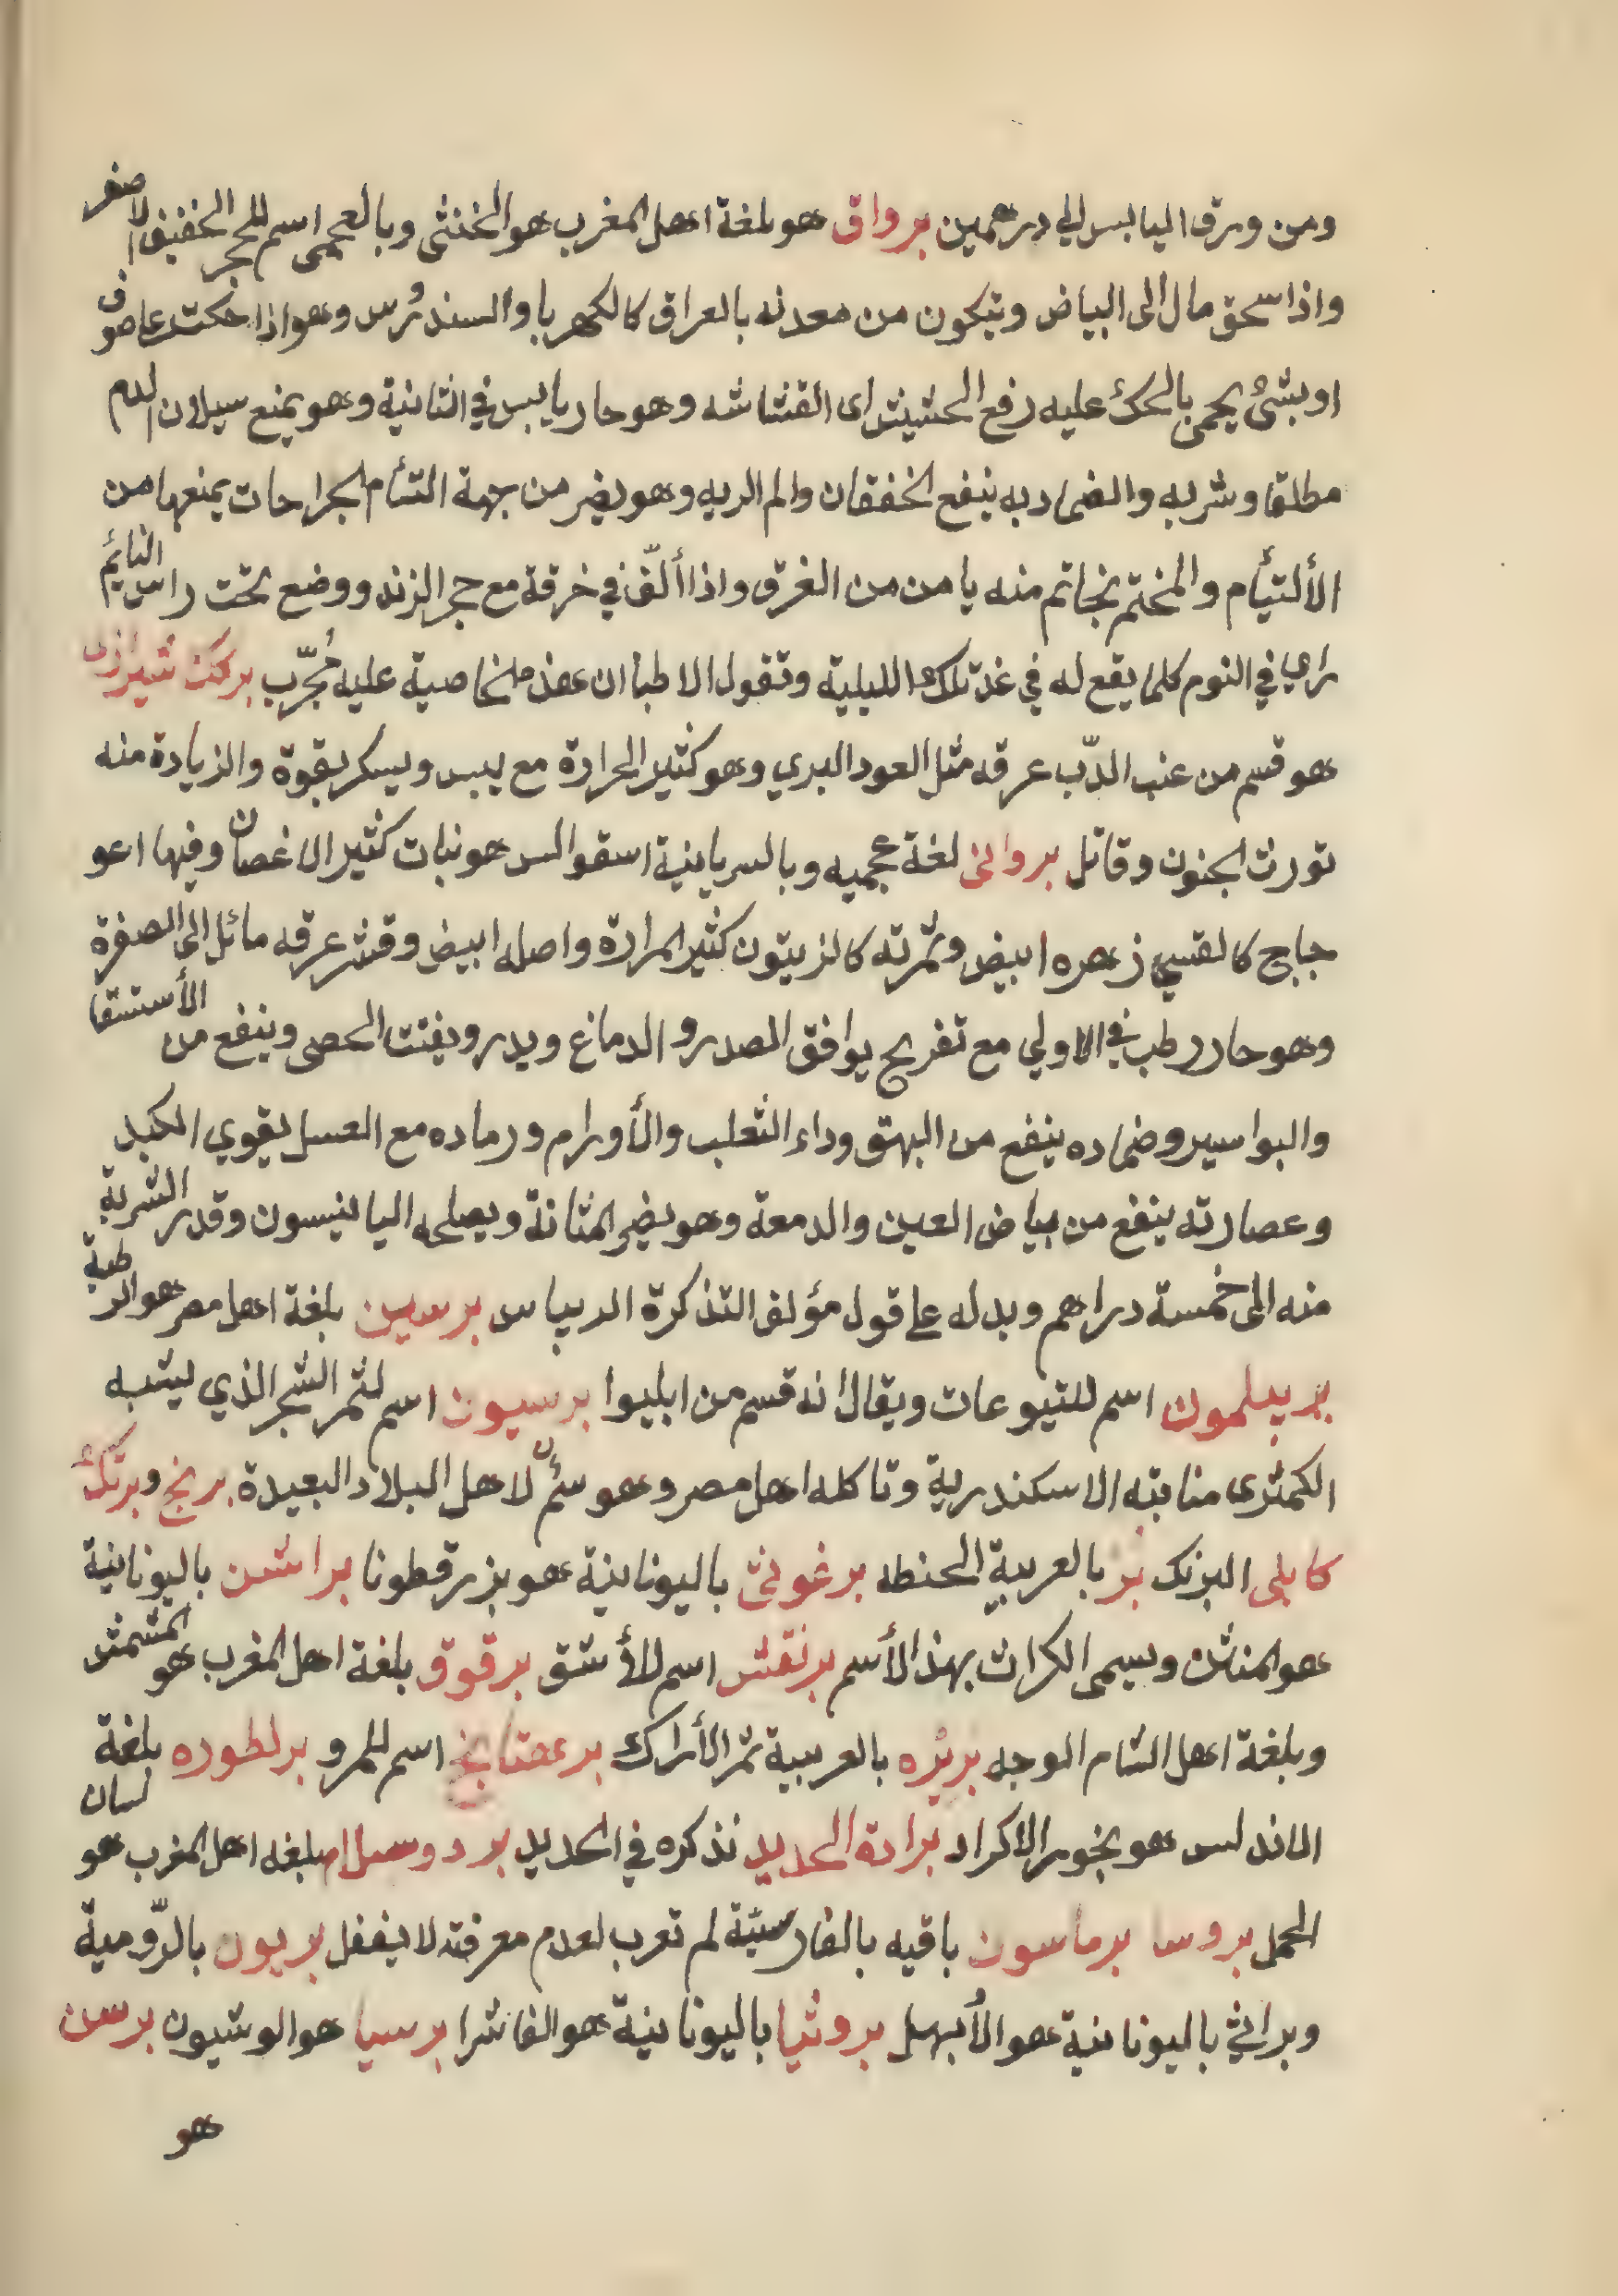 ومن ورق اليابس الي درهمين برواق هو بلغة اهل المغرب هو الخنثى وبالعجمى اسم للحجر الخفيف الاصفر
واذا سحق مال الى البياض ويتكون من معدنه بالعراق كالكهربا والسندرُس وهو اذا حكت علي صوف
او بشئ يحمى بالحك عليه رفع الحشيش اى القشاشه وهو حار يابس في الثانية وهو يمنع سيلان الدم
مطلقا وشربه والضماد به ينفع الخفقان والم الريه وهو يضر من جهة التئام الجراحات يمنعها من
الألتيأم والمختم بخاتم منه يامن من الغرق واذا ألفّ في خرقة مع حجر الزند ووضع تحت راس النائم
راي في النوم كلما يقع له في غد تلك الليلية وتقول الاطبا ان هذه الخاصية عليه مُجرّب بركك شيرازى
هو قسم من عنب الدّب عرقه مثل العود البري وهو كثير الحرارة مع يبس ويسكر بقوة والزيادة منه
تورث الجنون وقاتل بروانى لغة عجميه وبالسريانية اسقوالس هو نبات كثير الاغصان وفيها اعو
جاج كالقسي زهره ابيض وثمرته كالزيتون كثير المرارة واصله ابيض وقشر عرقه مائل الى الصفرة
وهو حار رطب في الاولي مع تفريح يوافق الصدر والدماغ ويدر ويفتت الحصى وينفع من الأستسقا
والبواسير وضماده ينفع من البهق وداء الثعلب والأورام ورماده مع العسل يقوي الكبد
وعصارته ينفع من بياض العين والدمعة وهو يضر المثانة ويصلحه اليانيسون وقدر الشربة
منه الى خمسة دراهم وبدله على قول مؤلف التذكرة الدبياس برسين بلغة اهل مصر هو الرطبة
بربيلمون اسم للتيوعات ويقال انه قسم من ابليوا برسيون اسم لثمر الشجر الذي يشبه
الكمثرى منابته الاسكندرية وتاكله اهل مصر وهو سمٌّ لاهل البلاد البعيدة برنج وبرنك
كابلى البزنك بُر بالعربية الحنطه برغوثى باليونانية هو بزر قطونا براشن باليونانية
هو المنثن ويسمى الكراث بهذ الأسم برنقش اسم للأشق برقوق بلغة اهل المغرب هو المشمش
وبلغة اهل الشام الوجه بريُره بالعربية ثمر الأراك برهقانج اسم للمرو برلطوره بلغة
الاندلس هو بخور الاكراد برادة الحديد نذكره في الحديد بردوسلام بلغه اهل المغرب هو لسان
الحمل بروسا برماسون باقيه بالفارسيّة لم تعرب لعدم معرفته لا يغفل بريون بالرّومية
وبراثي باليونانية هو الأبهل بروثيا باليونانية هو الفاشرا برسيا هو الوشيون برسن
هو